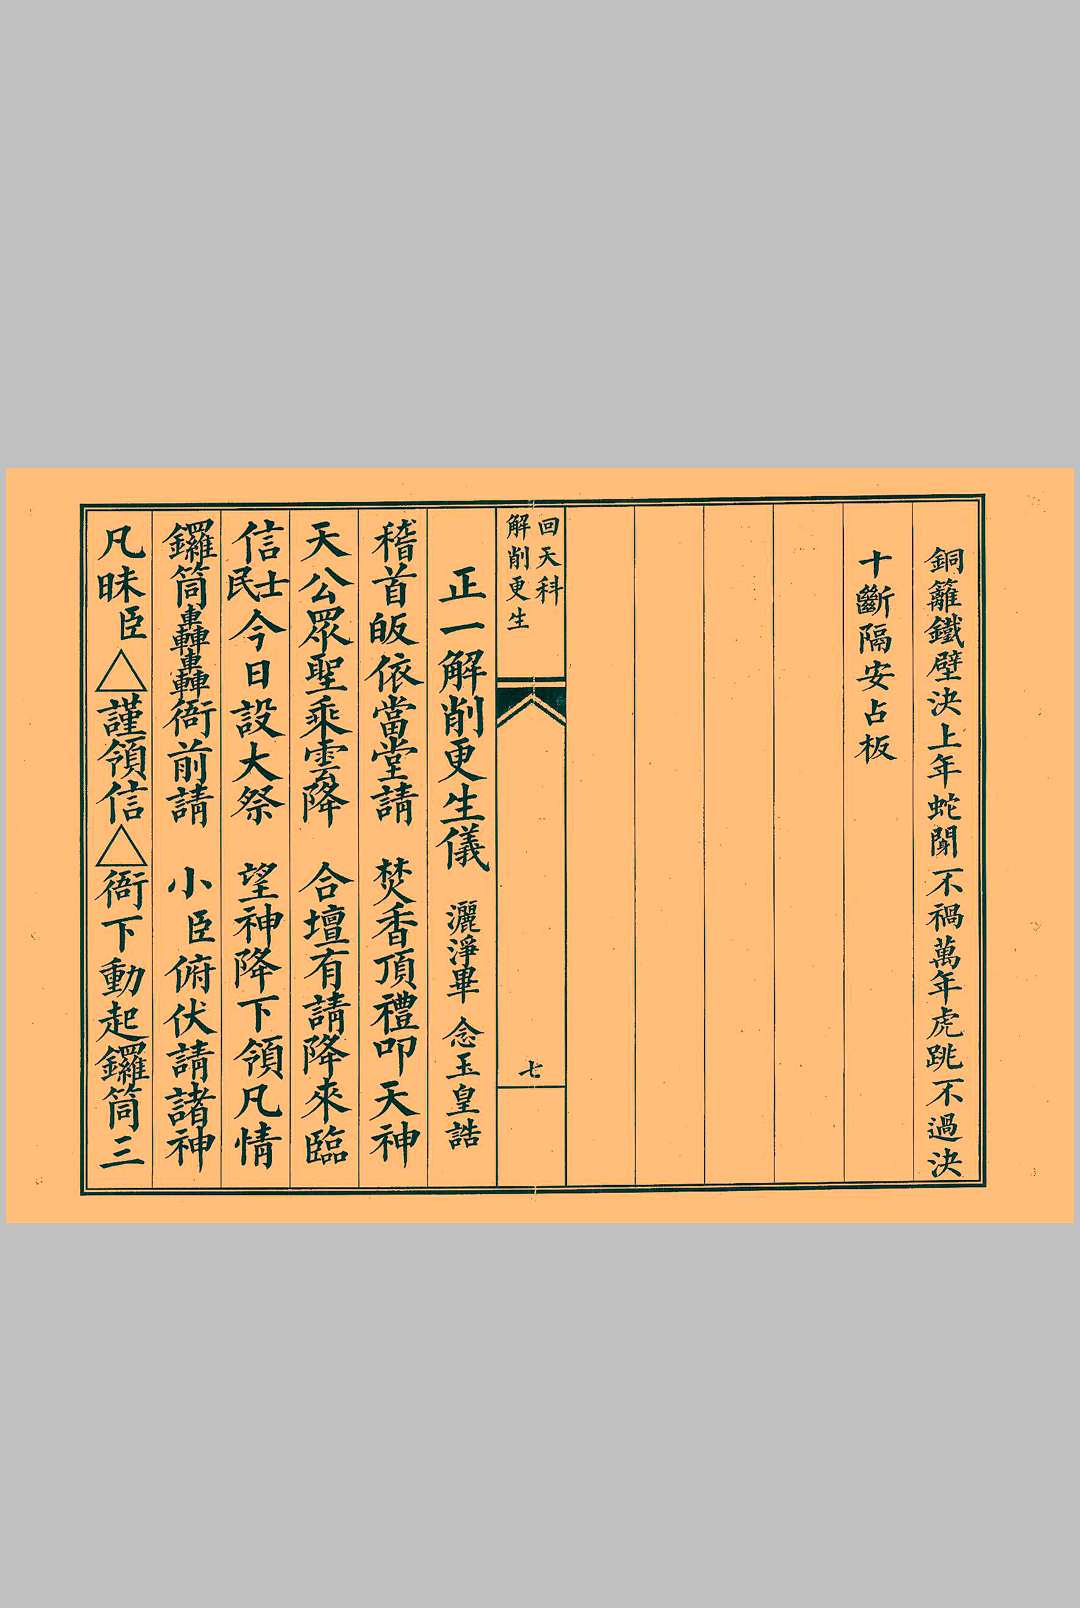 銅籬鐵壁決上年蛇聞不禍萬年虎跳不過決
十斷隔安占板
回天科
解削更生
七
正一解削更生儀 灑淨畢 念玉皇誥
稽首皈依當堂請 焚香頂禮叩天神
天公眾聖乘雲降 合壇有請降來臨
信士民今日設大祭 望神降下領凡情
鑼筒轟轟衙前請 小臣俯伏請諸神
凡昧臣△謹領信△衙下動起鑼筒三